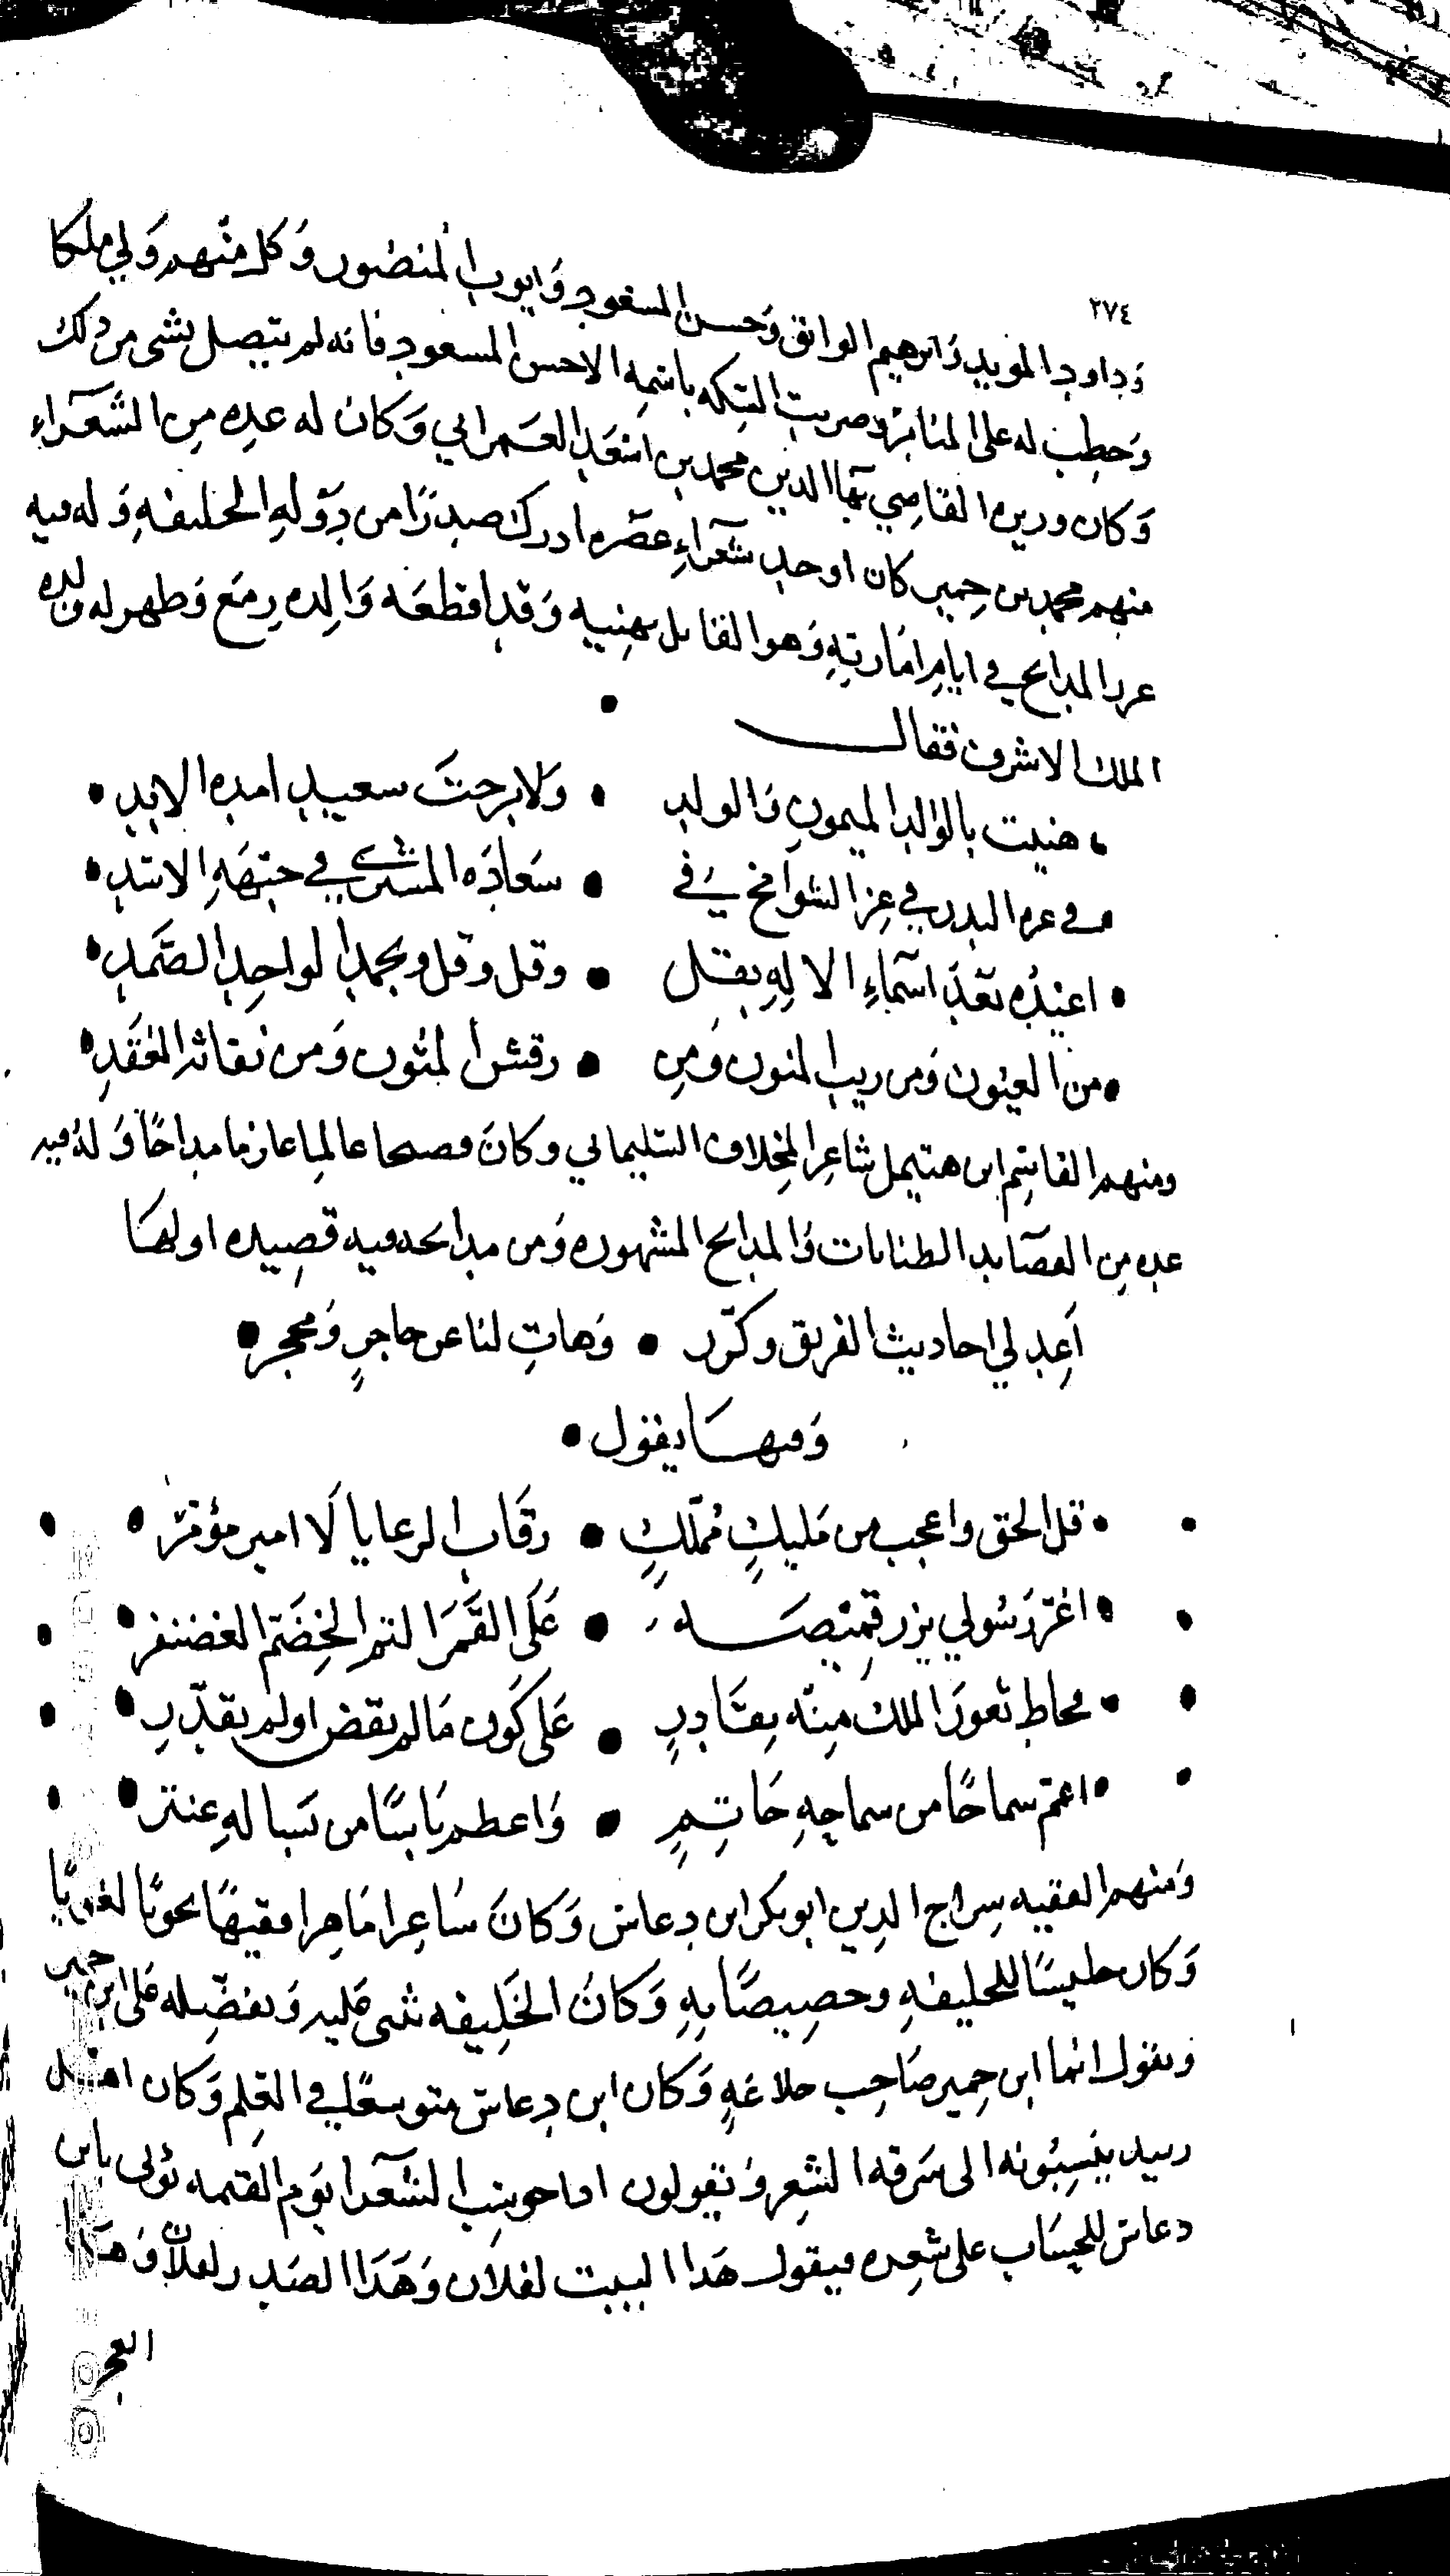 ٢٧٤
وداود المويد وابرهيم الواثق وحسن المسعود وايوب المنصور وكل منهم ولي ملكا
وخطب له على المنابر وضربت السكه باسمه الا حسن المسعود فانه لم يتصل بشى من ذلك
وكان وزيره القاضي بهاالدين محمد بن اسعد العمراني وكان له عده من الشعراء
منهم محمد بن حمير كان اوحد شعراء عصره ادرك صدرًا من دولة الخليفه وله فيه
غرر المدايح في ايام امارته وهو القايل يهنيه وقد اقطعه والده رمع وظهر له ولده
الملك الاشرف فقال
هنيت بالوالد الميمون والولد • ولا برحت سعيدا مده الابد
في عره البدر في عز الشوامخ في • سعاده المشتري في جبهه الاسد
اعيذه بعد اسماء الاله بقل • وقل وقل وبحمد الواحد الصمد
من العيون ومن ريب المنون ومن • رقش المتون ومن نفاثه العقد
ومنهم القاسم ابن هتيمل شاعر المخلاف السليماني وكان فصيحا عالما عارفا مداحًا وله فيه
عده من القصايد الطنانات والمدايح المشهوره ومن مدايحه فيه قصيده اولها
اعد لي احاديث الفريق وكرّر • وهات لنا عن حاجرٍ ومحجر
ومنها يقول
قل الحق واعجب من مليكٍ مملّكٍ • رقاب الرعايا لا امير مؤمر
اغر رسولي يزر قميصه • على القمر التم الخضم الغضنفر
محاط ثغور الملك منه بقادرٍ • على كون مالم يقض او لم يقدّر
اعم سماحًا من سماحه حاتمٍ • واعظم باسًا من بسالهِ عنتر
ومنهم الفقيه سراج الدين ابوبكر ابن دعاس وكان شاعرا ماهرا فقيهًا نحويًا لغويًا
وكان جليسًا للخليفه وخصيصًا به وكان الخليفه يثنى عليه ويفضله على ابن حمير
ويقول انما ابن حمير صاحب خلاعهٍ وكان ابن دعاس متوسعًا في العلم وكان اهل
زبيد ينسبونه الى سرقه الشعر ويقولون اذا حوسب الشعرا يوم القيمه يؤتى بابن
دعاس للحساب على شعره فيقول هذا البيت لفلان وهذا الصدر لفلان وهذا
العجز